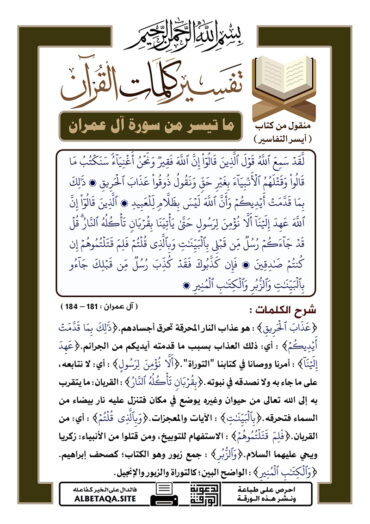 بسم الله الرحمن الرحيم
تفسير كلمات القرآن
ما تيسر من سورة آل عمران
منقول من كتاب
( أيسر التفاسير )
لَّقَدْ سَمِعَ ٱللَّهُ قَوْلَ ٱلَّذِينَ قَالُوٓا۟ إِنَّ ٱللَّهَ فَقِيرٌ وَنَحْنُ أَغْنِيَآءُ سَنَكْتُبُ مَا
قَالُوا۟ وَقَتْلَهُمُ ٱلْأَنۢبِيَآءَ بِغَيْرِ حَقٍّ وَنَقُولُ ذُوقُوا۟ عَذَابَ ٱلْحَرِيقِ ۞ ذَٰلِكَ
بِمَا قَدَّمَتْ أَيْدِيكُمْ وَأَنَّ ٱللَّهَ لَيْسَ بِظَلَّامٍ لِّلْعَبِيدِ ۞ ٱلَّذِينَ قَالُوٓا۟ إِنَّ
ٱللَّهَ عَهِدَ إِلَيْنَآ أَلَّا نُؤْمِنَ لِرَسُولٍ حَتَّىٰ يَأْتِيَنَا بِقُرْبَانٍ تَأْكُلُهُ ٱلنَّارُ ۗ قُلْ
قَدْ جَآءَكُمْ رُسُلٌ مِّن قَبْلِى بِٱلْبَيِّنَٰتِ وَبِٱلَّذِى قُلْتُمْ فَلِمَ قَتَلْتُمُوهُمْ إِن
كُنتُمْ صَٰدِقِينَ ۞ فَإِن كَذَّبُوكَ فَقَدْ كُذِّبَ رُسُلٌ مِّن قَبْلِكَ جَآءُو
بِٱلْبَيِّنَٰتِ وَٱلزُّبُرِ وَٱلْكِتَٰبِ ٱلْمُنِيرِ ۞
( آل عمران : 181 – 184 )
شرح الكلمات :
﴿عَذَابَ ٱلْحَرِيقِ﴾ : هو عذاب النار المحرقة تحرق أجسادهم.﴿ذَٰلِكَ بِمَا قَدَّمَتْ
أَيْدِيكُمْ﴾ : أي: ذلك العذاب بسبب ما قدمته أيديكم من الجرائم.﴿عَهِدَ
إِلَيْنَآ﴾ : أمرنا ووصانا في كتابنا "التوراة".﴿أَلَّا نُؤْمِنَ لِرَسُولٍ﴾ : أي: لا نتابعه،
على ما جاء به ولا نصدقه في نبوته.﴿بِقُرْبَانٍ تَأْكُلُهُ ٱلنَّارُ﴾ : القربان: ما يتقرب
به إلى الله تعالى من حيوان وغيره يوضع في مكان فتنزل عليه نار بيضاء من
السماء فتحرقه.﴿بِٱلْبَيِّنَٰتِ﴾ : الآيات والمعجزات.﴿وَبِٱلَّذِى قُلْتُمْ﴾ : أي: من
القربان.﴿فَلِمَ قَتَلْتُمُوهُمْ﴾ : الاستفهام للتوبيخ، ومن قتلوا من الأنبياء: زكريا
ويحي عليهما السلام.﴿وَٱلزُّبُرِ﴾ : جمع زبور وهو الكتاب؛ كصحف إبراهيم.
﴿وَٱلْكِتَٰبِ ٱلْمُنِيرِ﴾ : الواضح البين؛ كالتوراة والزبور والإنجيل.
احرص على طباعة
ونشر هذه الورقة
الدعوية
الورقة
فالدال على الخير كفاعله
ALBETAQA.SITE